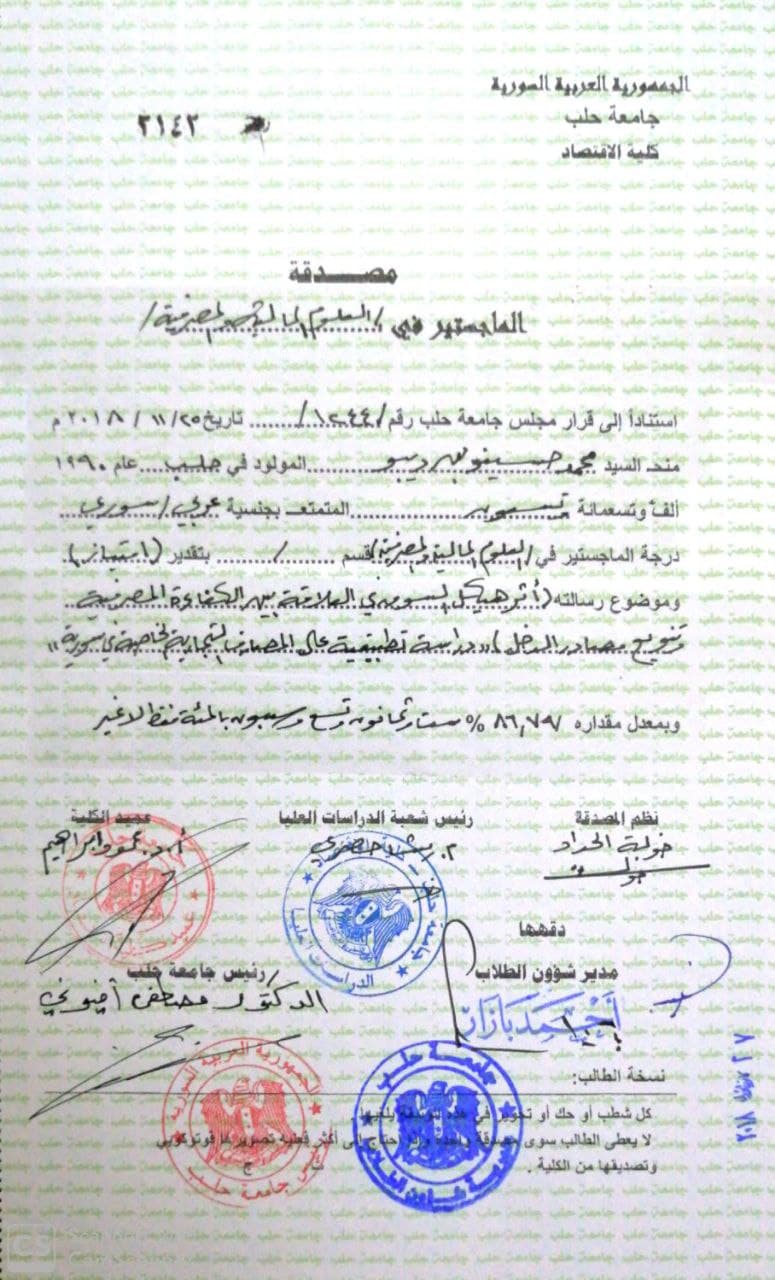 الجمهورية العربية السورية
جامعة حلب
كلية الاقتصاد
٣١٤٢
مصدقة
الماجستير في /العلوم المالية والمصرفية/
استناداً إلى قرار مجلس جامعة حلب رقم /١٢٤٤/ تاريخ ٢٥/ ١١ / ٢٠١٨ م
منح السيد محمد حسينو بن ديبو المولود في حلب عام ١٩٩٠
ألف وتسعمائة وتسعون المتمتع بجنسية عربي/سوري
درجة الماجستير في /العلوم المالية والمصرفية/ قسم / بتقدير (امتياز)
وموضوع رسالته (أثر هيكل السوق في العلاقة بين الكفاءة المصرفية
وتنويع مصادر الدخل) "دراسة تطبيقية على المصارف التجارية الخاصة في سورية"
وبمعدل مقداره ٨٦,٧٩ % ست وثمانون وتسع وسبعون بالمئة فقط لا غير
نظم المصدقة
رئيس شعبة الدراسات العليا
عميد الكلية
خولة الحداد
أ.د. عمرو ابراهيم
خولة
جامعة حلب
الدراسات العليا
دققها
مدير شؤون الطلاب
أحمد بازار
رئيس جامعة حلب
الدكتور مصطفى أفيوني
الجمهورية العربية السورية
رئيس جامعة حلب
جامعة حلب
نسخة الطالب:
كل شطب أو حك أو تحوير في هذه الوثيقة يلغيها
لا يعطى الطالب سوى مصدقة واحدة وإذا احتاج إلى أكثر فعليه تصويرها فوتوكوبي
وتصديقها من الكلية .